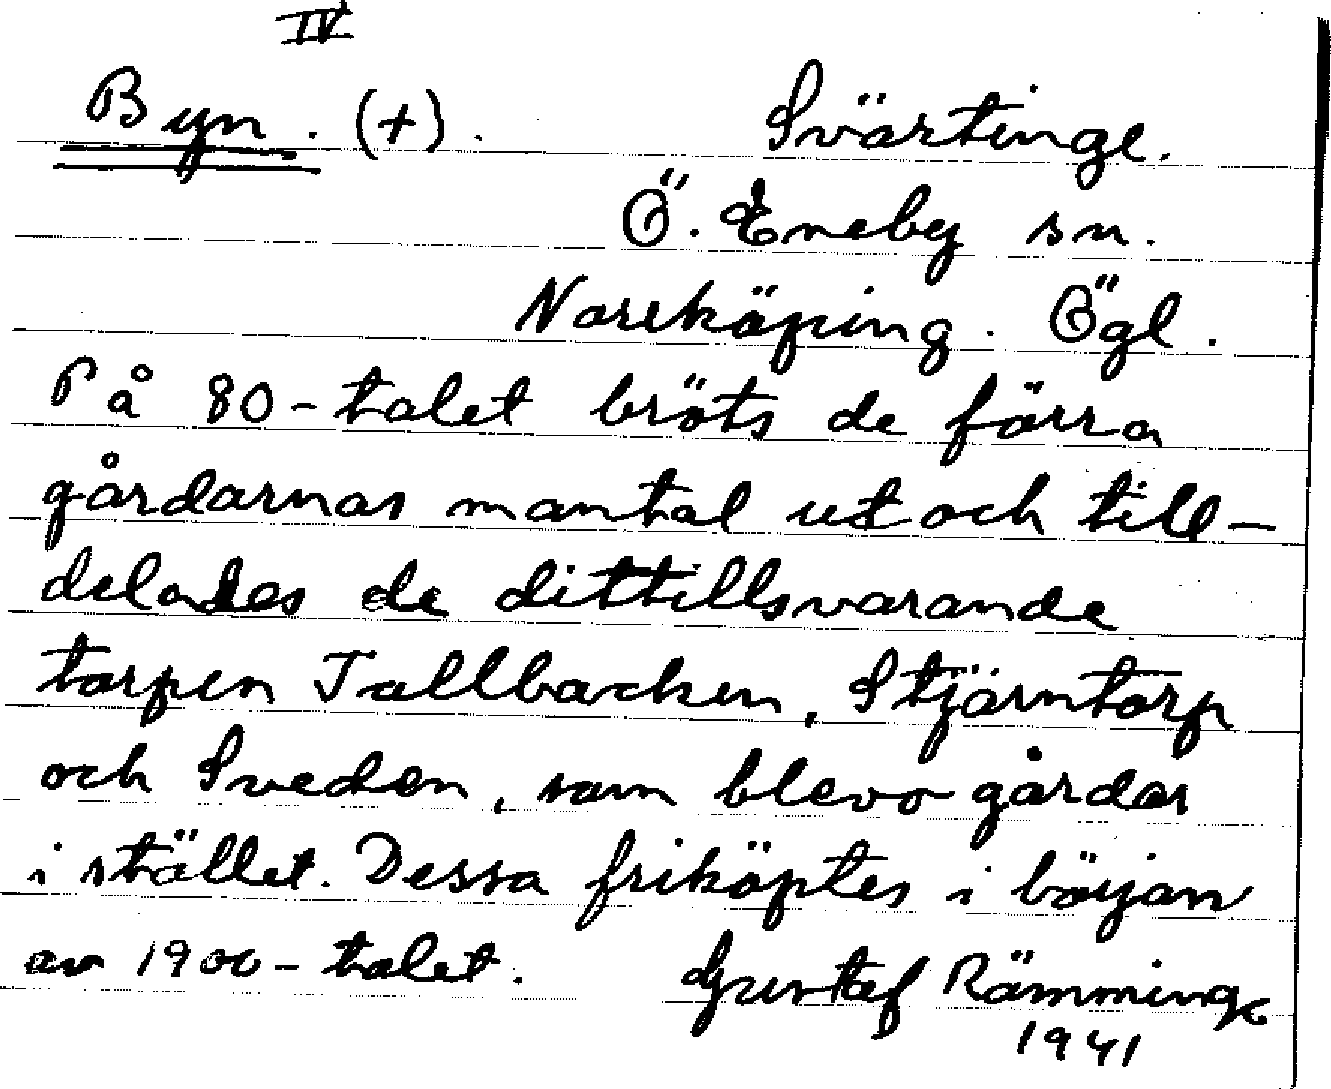 IV
Byn. (+). Svärtinge.
Ö. Eneby sn.
Norrköping. Ögl.
På 80-talet bröts de förra
gårdarnas mantal ut och till-
delades de dittillsvarande
torpen Tallbacken, Stjärntorp
och Sveden, som blevo gårdar
i stället. Dessa friköptes i början
av 1900-talet. Gustaf Rämminge
1941